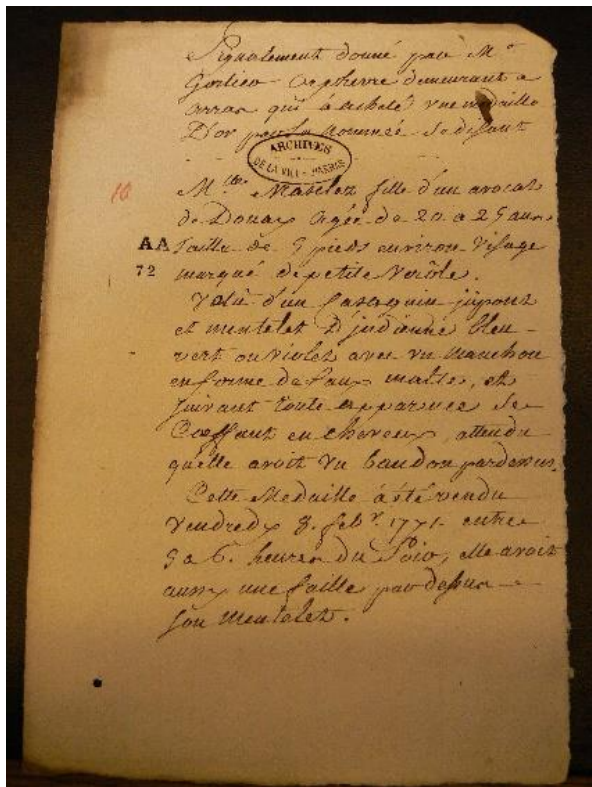 Signalement donné par Mr
Orphevre demeurant a
arras qui à acheté une medaille
D'or par la nommée Se disant
ARCHIVES
DE LA VILLE D'ARRAS
10
Melle fille d'un avocat
de Douay agée de 20 a 25 ans
AA
72
taille de 5 pieds environ visage
marqué de petite verôle.
Vetu d'un Casaquin jupons
et mentelet D'indienne bleu
vert ou violet avec un manchon
en forme de faux , et
suivant toute apparence Se
Coeffant en cheveux, attendu
quelle avoit un bandon par dessus.
Cette Medaille à été vendu
Vendredy 8. febr. 1771. entre
5 a 6. heures du Soir, elle avoit
aussy une faille par dessus
son mentelet.